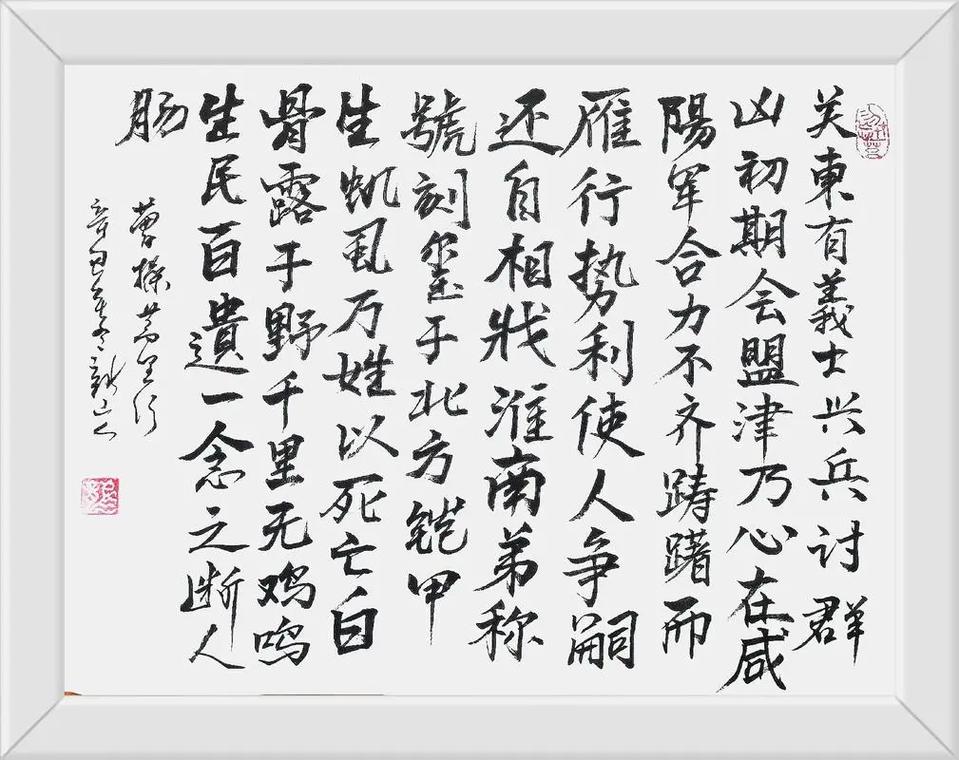 关東有義士兴兵討群
凶初期会盟津乃心在咸
陽军合力不齐踌躇而
雁行势利使人争嗣
还自相戕淮南弟称
號刻玺于北方铠甲
生虮虱万姓以死亡白
骨露于野千里无鸡鸣
生民百遺一念之断人
肠
曹操蒿里行